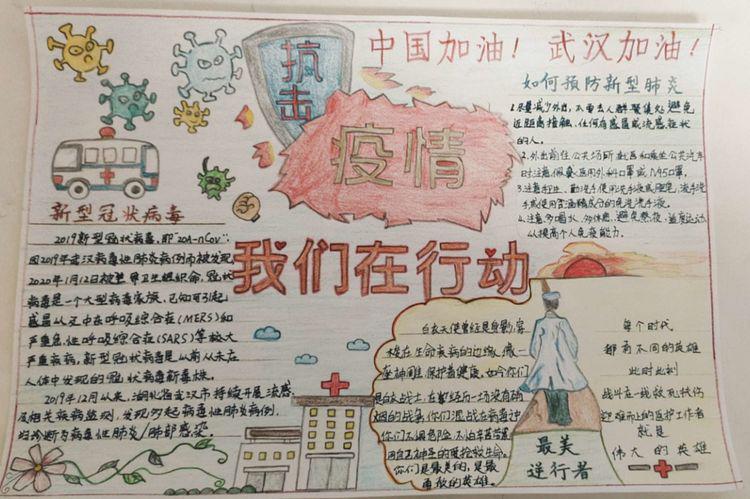 中国加油！ 武汉加油！
抗击
疫情
我们在行动
如何预防新型肺炎
1.尽量减少外出，不要去人群聚集处，避免
近距离接触，任何有感冒或流感症状
的人。
2.外出前往公共场所
时注意佩戴医用外科口罩或N95口罩。
4.注意多喝水，多休息，避免熬夜，适度运动
以提高个人免疫能力。
新型冠状病毒
2019新型冠状病毒，即"
因2019年武汉病毒性肺炎病例而被发现
2020年1月12日被世界卫生组织命，冠状
病毒是一个大型病毒家族，已知可引起
感冒以及中东呼吸综合征(MERS)和
严重急性呼吸综合征(SARS)等较大
严重疾病，新型冠状病毒是以前从未在
人体中发现的冠状病毒新毒株。
2019年12月以来，湖北省武汉市持续开展流感
及相关疾病监测，发现多起病毒性肺炎病例，
均诊断为病毒性肺炎/肺部感染。
白衣天使
在生命
座神圣，保护着健康，如今你们
是白衣战士，在
烟的战场
你们不顾危险，不怕辛苦
用自己
你们是最美的，是最
勇敢的英雄。
最美
逆行者
每个时代
都有不同的英雄
此时此刻
战斗在一线救死扶伤
迎难而上的医护工作者
就是
伟大的英雄